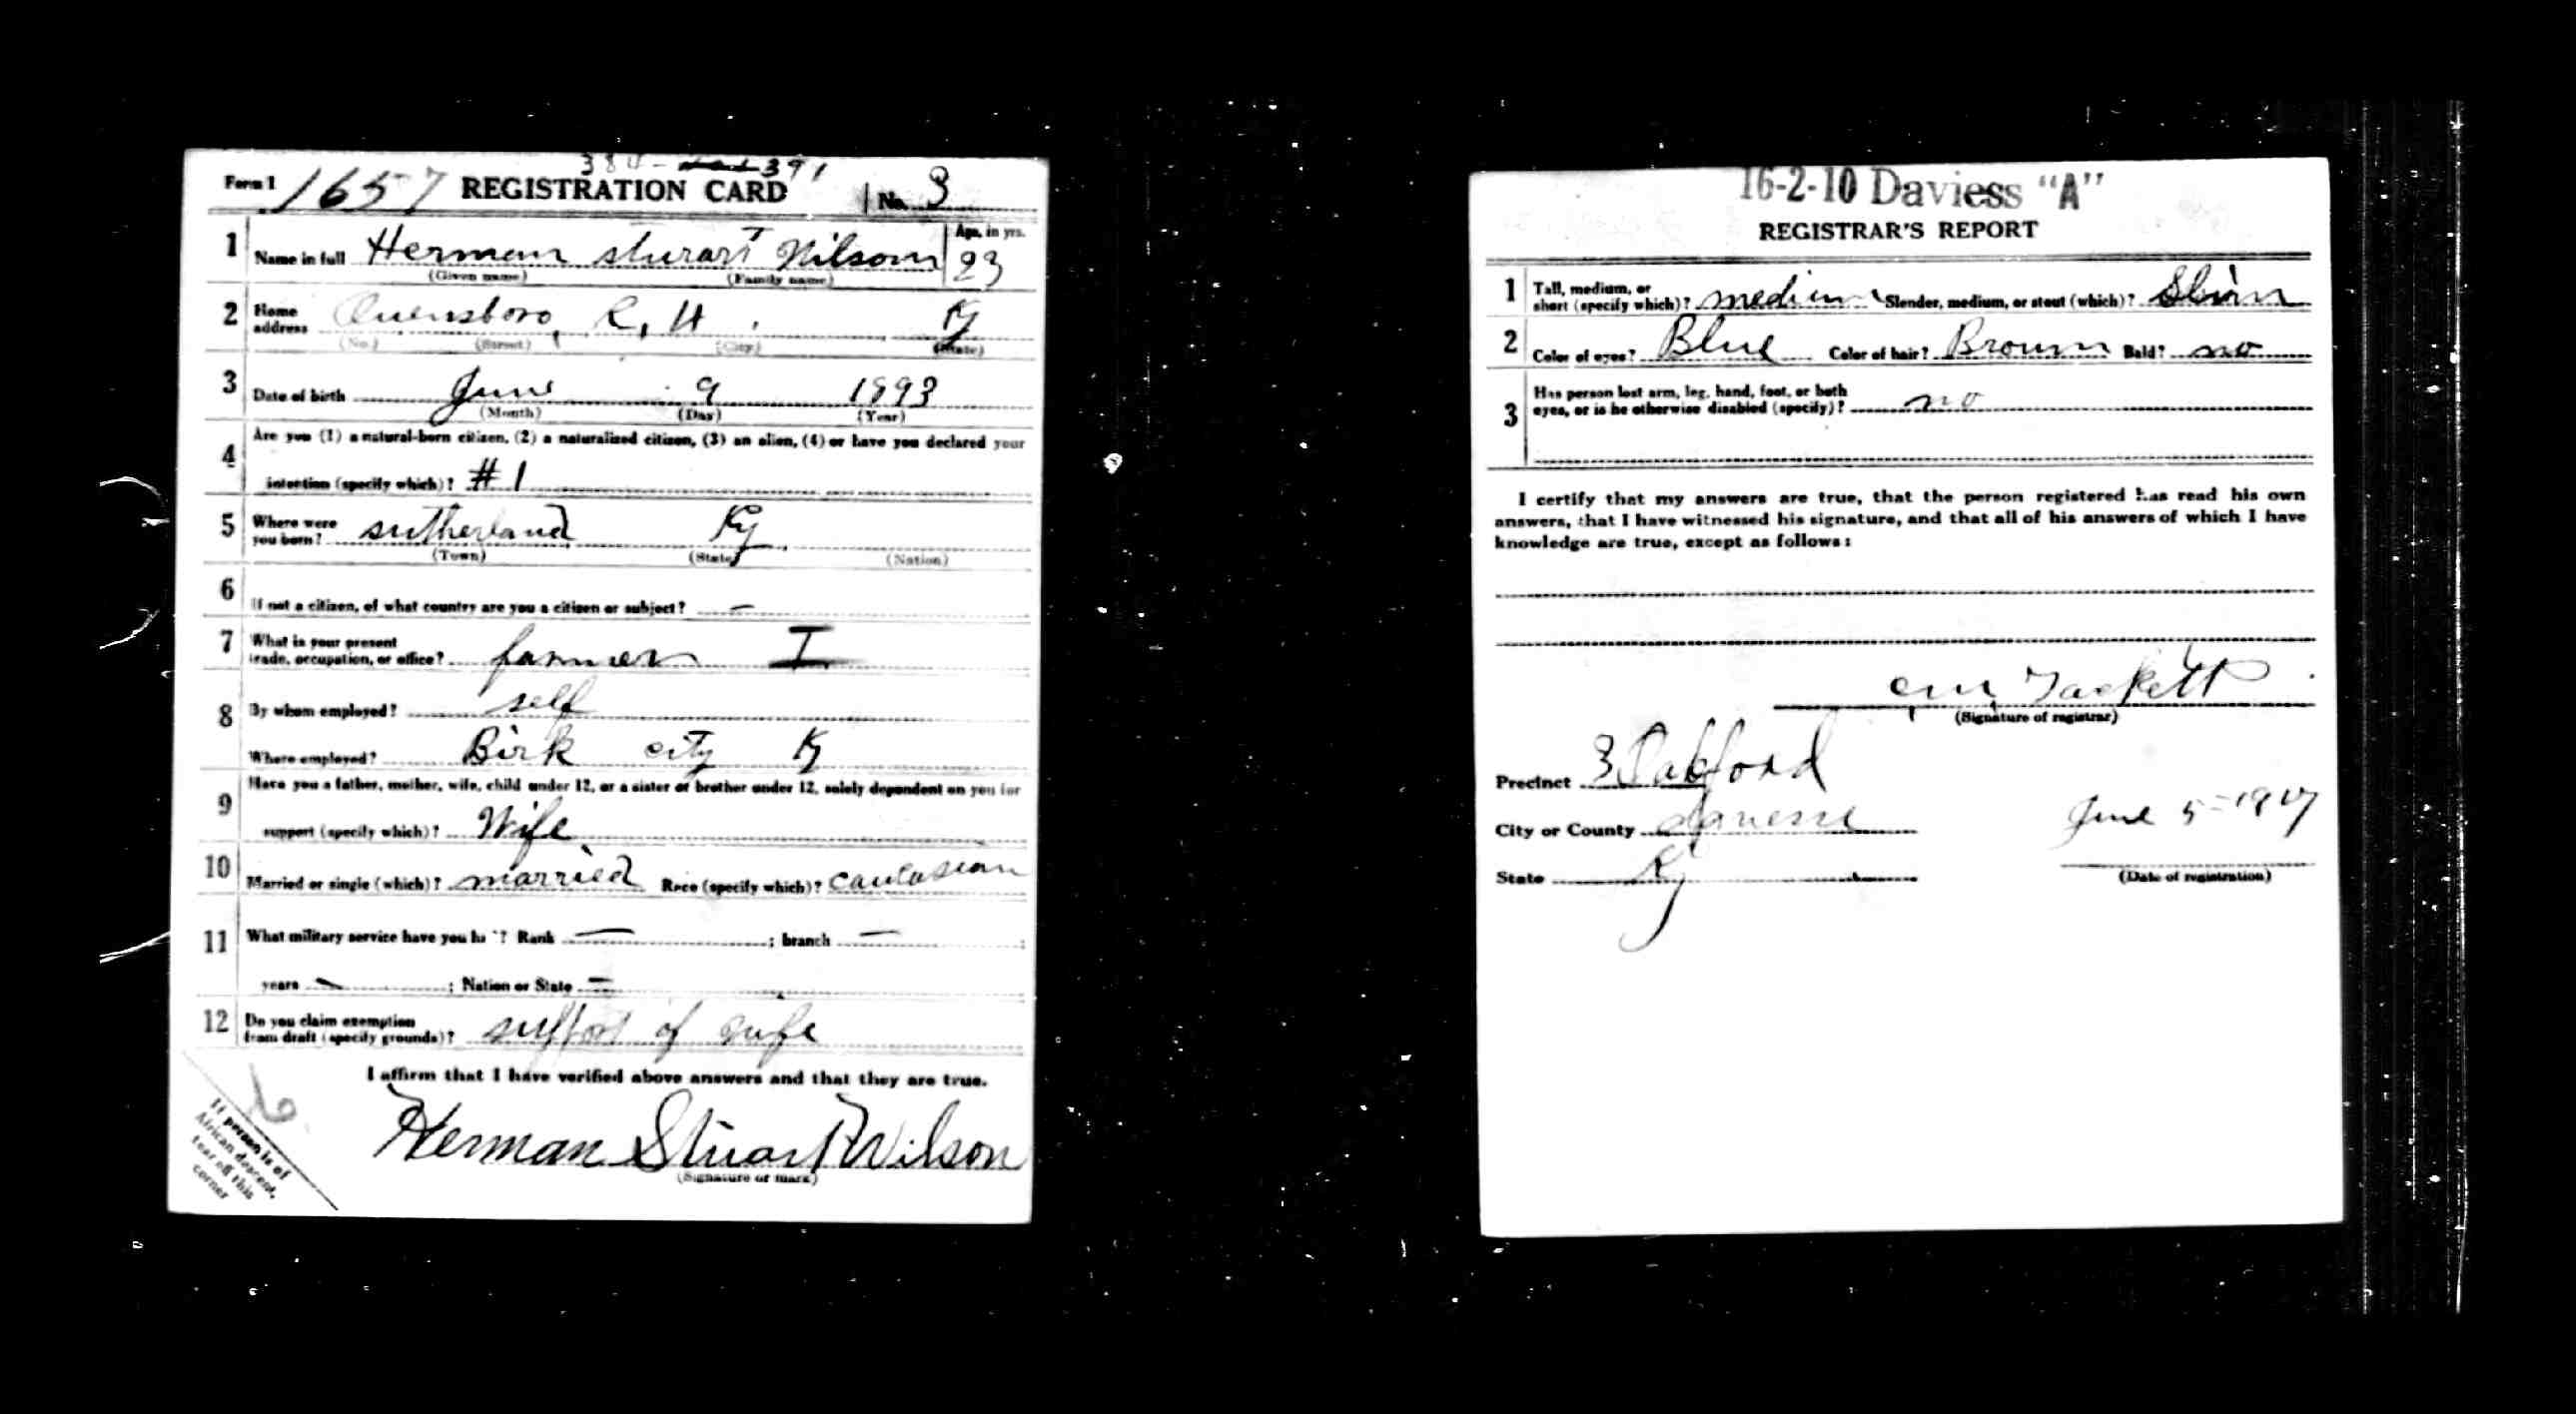 384- 391
Form 1 1657 REGISTRATION CARD No. 3
1 Name in full Herman sturart Wilson Age, in yrs. 23
(Given name) (Family name)
2 Home address Owensboro, R, 4 Ky
(No.) (Street) (City) (State)
3 Date of birth June 9 1893
(Month) (Day) (Year)
4 Are you (1) a natural-born citizen, (2) a naturalized citizen, (3) an alien, (4) or have you declared your
intention (specify which)? # 1
5 Where were you born? sutherland Ky
(Town) (State) (Nation)
6 If not a citizen, of what country are you a citizen or subject? —
7 What is your present trade, occupation, or office? farmer I
8 By whom employed? self
Where employed? Birk city Ky
9 Have you a father, mother, wife, child under 12, or a sister or brother under 12, solely dependent on you for
support (specify which)? Wife
10 Married or single (which)? married Race (specify which)? caucasian
11 What military service have you ha ? Rank — ; branch — ;
years — ; Nation or State —
12 Do you claim exemption from draft (specify grounds)? support of wife
I affirm that I have verified above answers and that they are true.
Herman Stuart Wilson
(Signature or mark)
If person is of
African descent,
tear off this
corner
16-2-10 Daviess "A"
REGISTRAR'S REPORT
1 Tall, medium, or short (specify which)? medium Slender, medium, or stout (which)? Slim
2 Color of eyes? Blue Color of hair? Brown Bald? no
3 Has person lost arm, leg, hand, foot, or both
eyes, or is he otherwise disabled (specify)? no
I certify that my answers are true, that the person registered has read his own
answers, that I have witnessed his signature, and that all of his answers of which I have
knowledge are true, except as follows:
Tackett
(Signature of registrar)
Precinct 3 Oakford
City or County Daviess
June 5-1917
State Ky
(Date of registration)